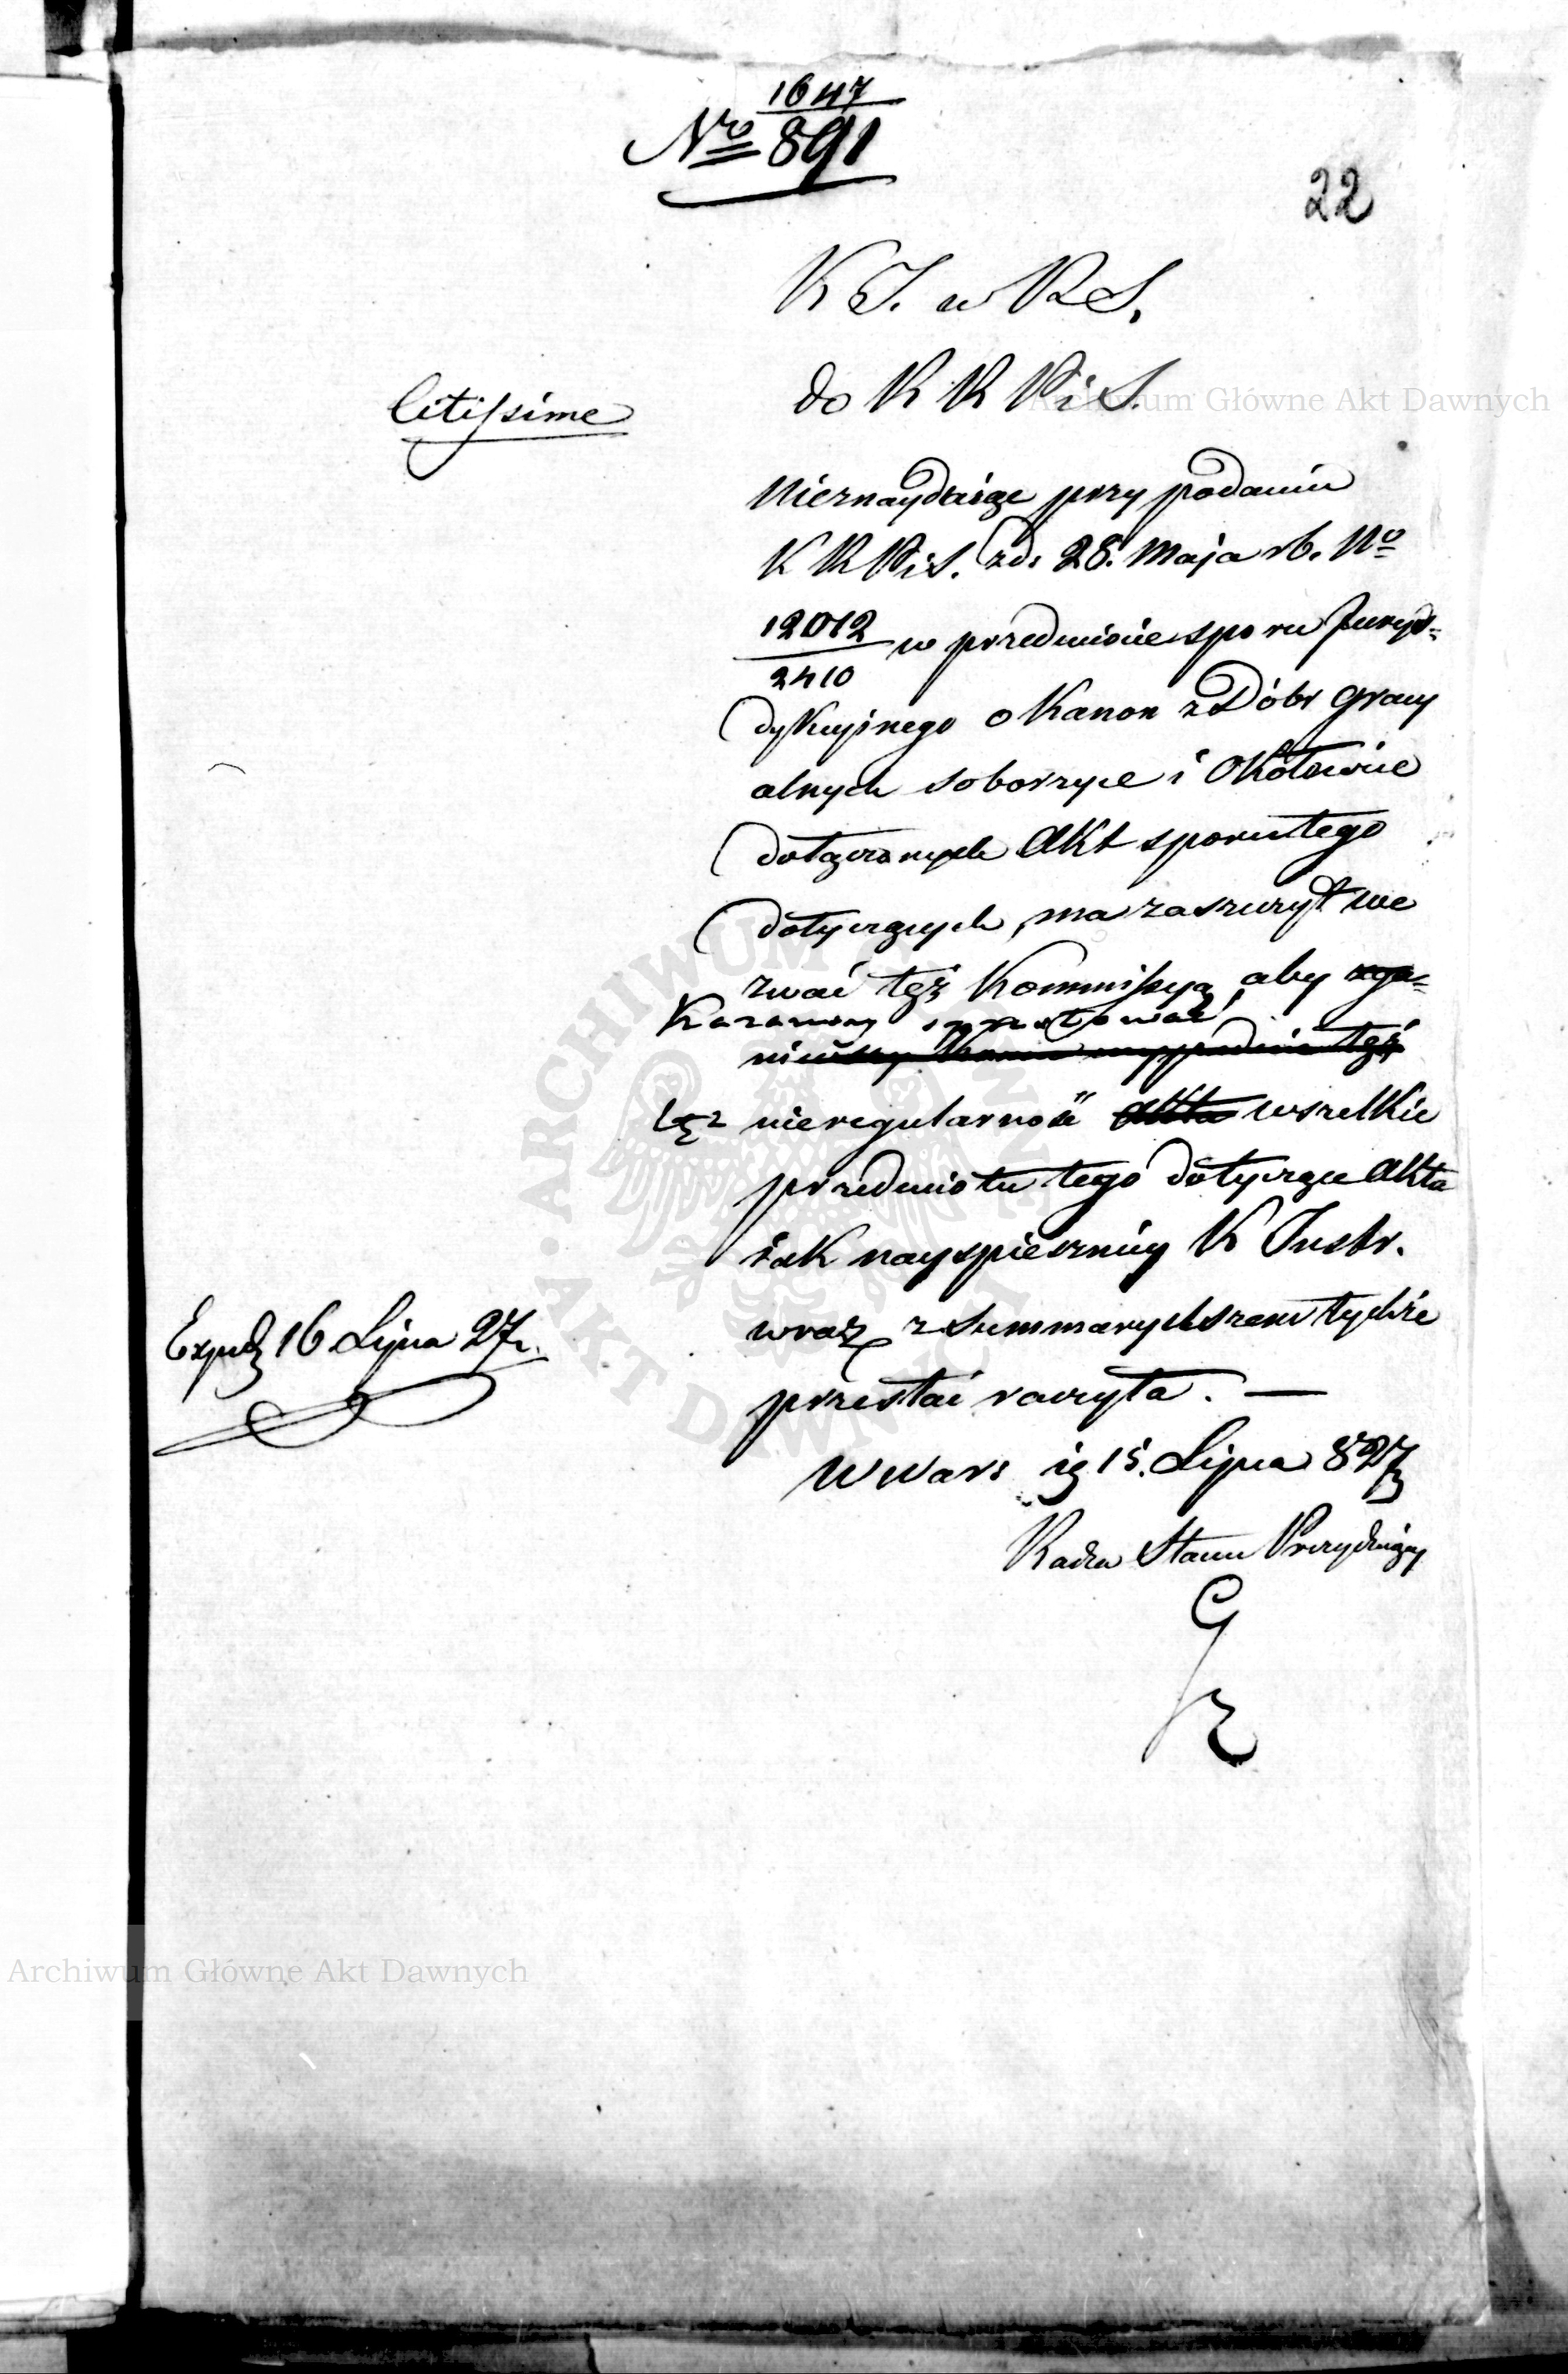 1647
Nro 891
22
K J. w R S.
do K R P i S.
Citissime
Nieznaydując przy podaniu
K R P i S. z d. 28. Maja rb. No
12012
2410
w przedmiocie sporu Juryz=
dykcyjnego o Kanon z Dóbr Gracy
alnych Soborzyce i Okołowice
dołączonych Akt sporu tego
dotyczących, ma zaszczyt we
zwać tęż Kommissyą, aby
Kazawszy sprostować
tęz nieregularność Akta wszelkie
przedmiotu tego dotyczące Akta
iak nayspieszniey K Instr.
wraz z Summaryuszem tychże
przesłać raczyła. —
W Wars. ig 15. Lipca 827
Radca Stanu Prezyduiący
Exped 16 Lipca 27 r.
Archiwum Główne Akt Dawnych
Archiwum Główne Akt Dawnych
ARCHIWUM GŁÓWNE AKT DAWNYCH